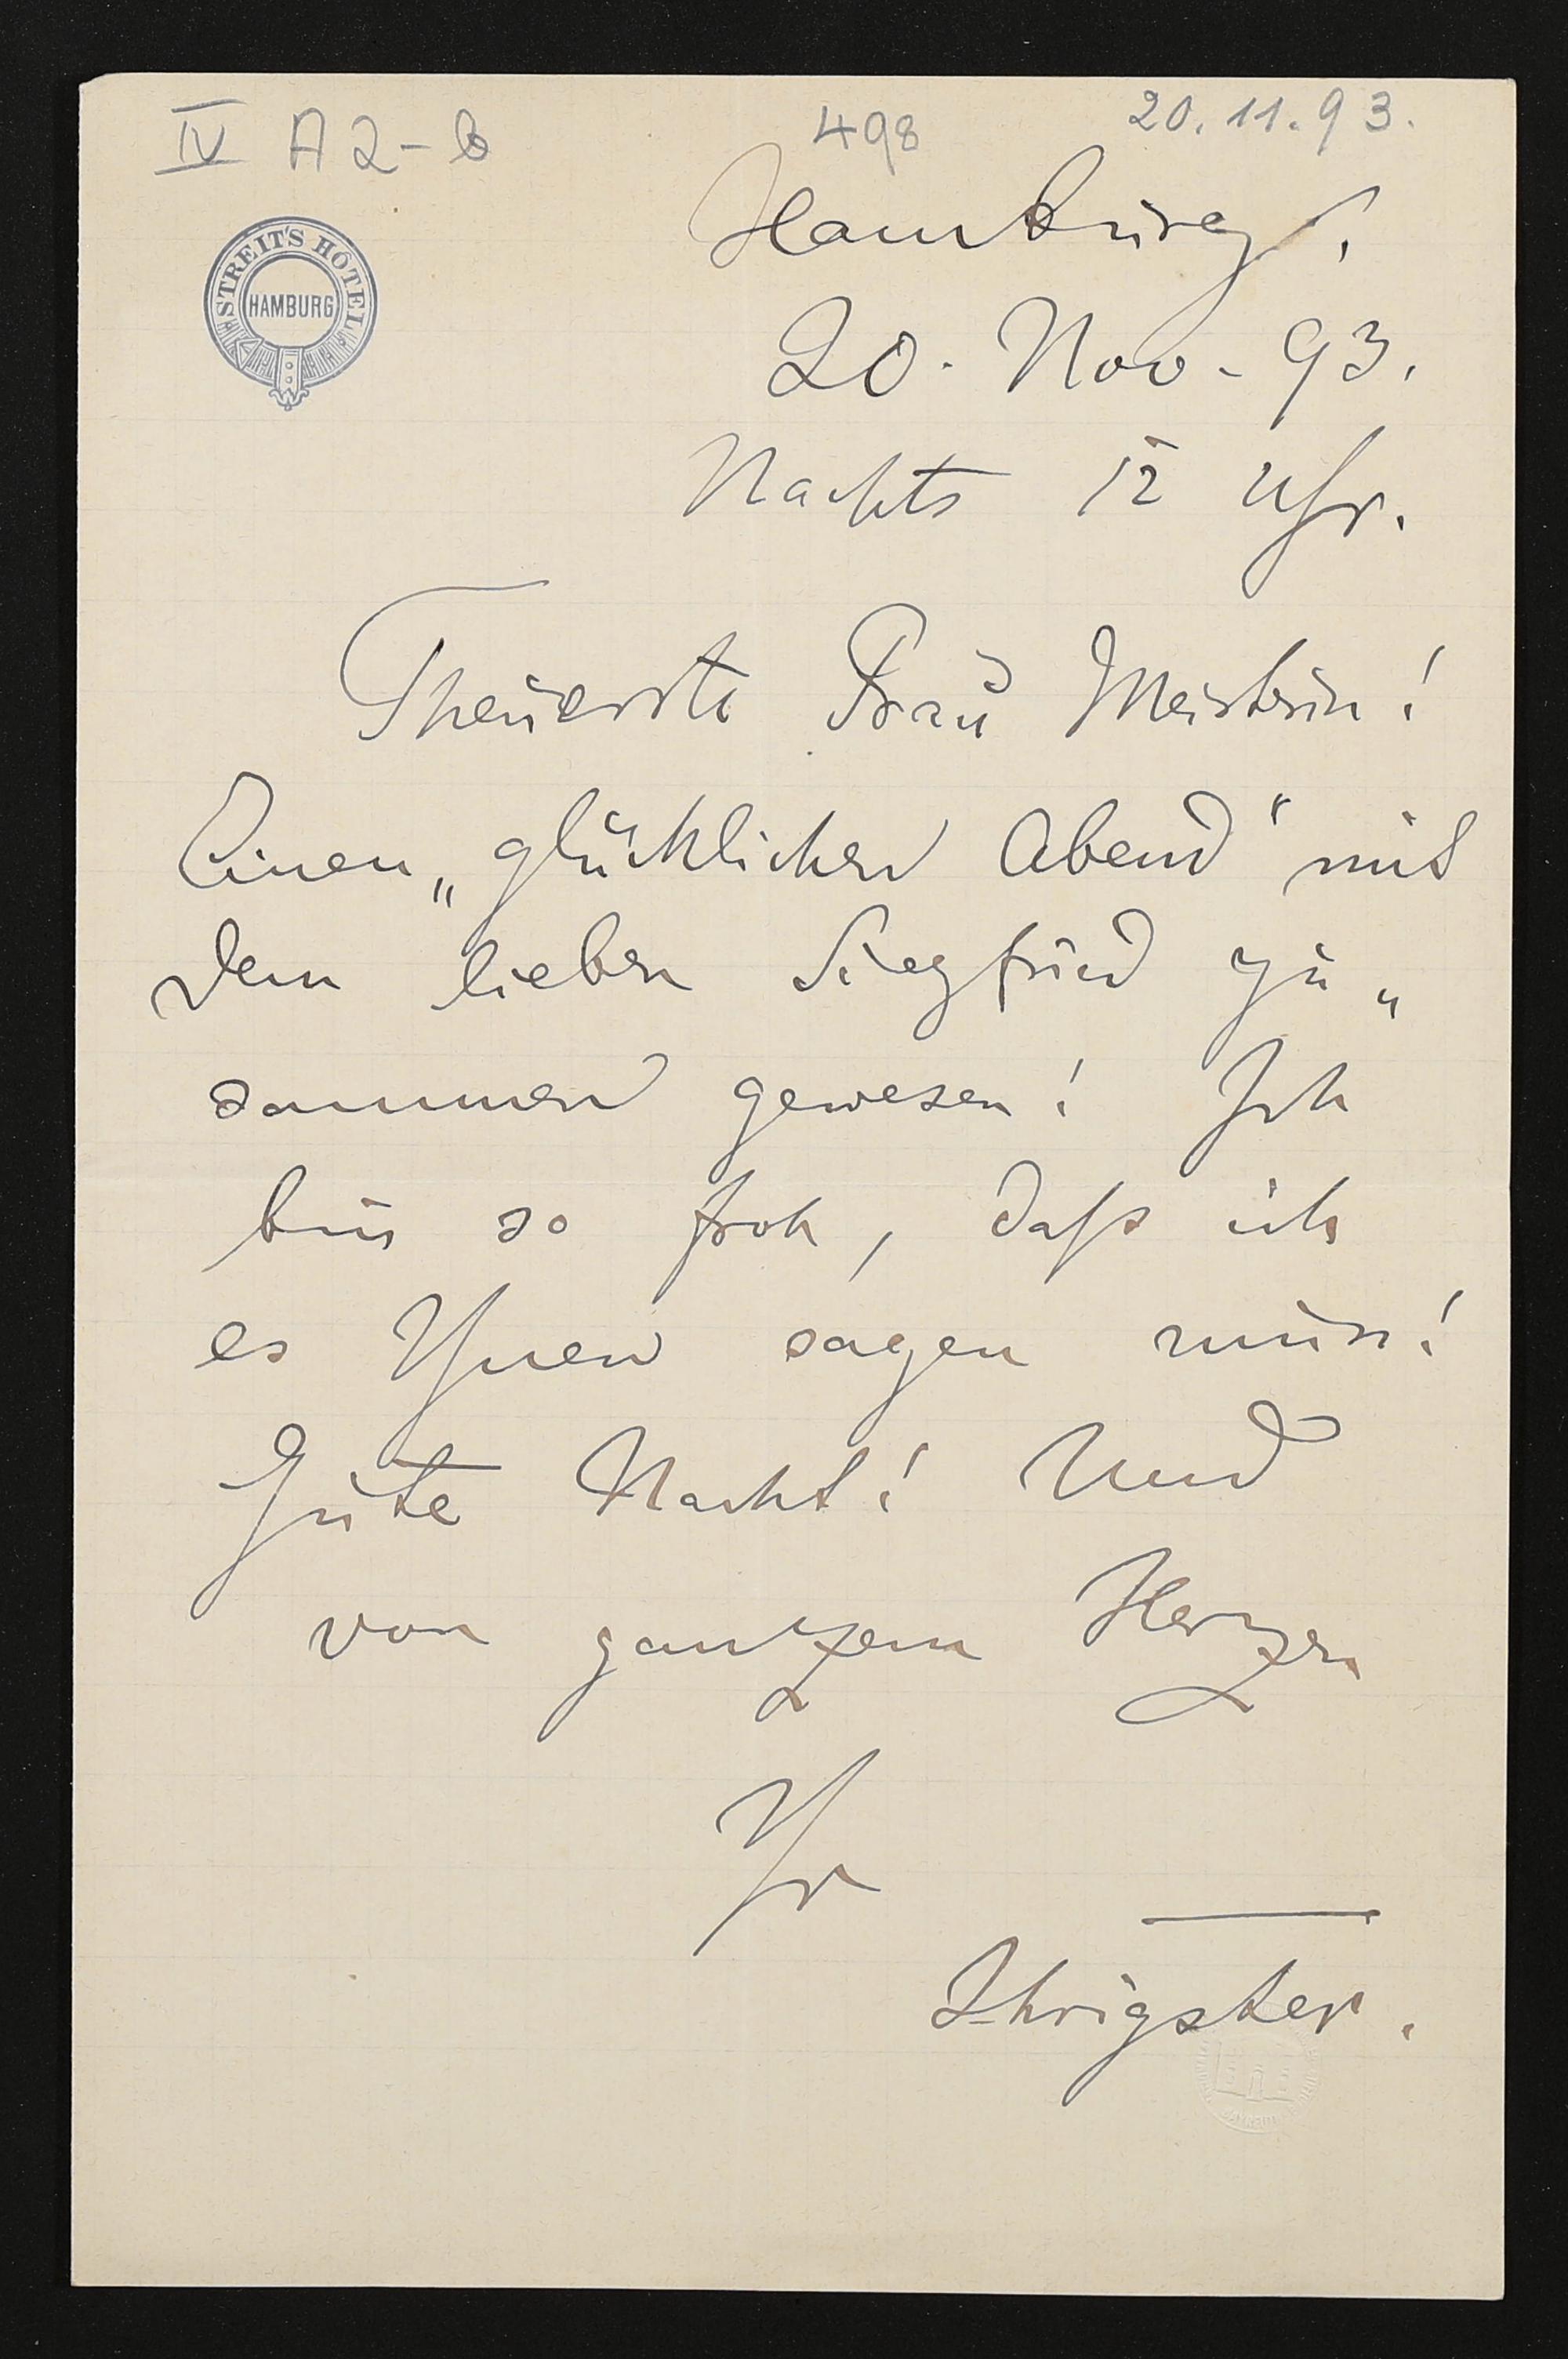 IV A2-b 498 20.11.93.
STREIT'S HÔTEL
HAMBURG
Hamburg.
20. Nov. 93.
Nachts 12 Uhr.
Theuerste Frau Meisterin!
Einen „glücklichen Abend“ mit
dem lieben Siegfried zu„
sammen gewesen! Ich
bin so froh, daß ich
es Ihnen sagen muss!
Gute Nacht! Und
von ganzem Herzen
Ihr
Ihrigster.